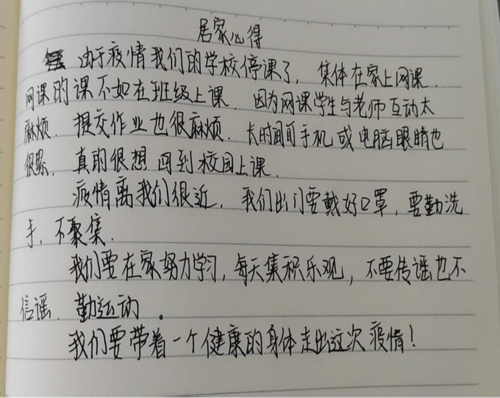 居家心得
由于疫情我们的学校停课了，集体在家上网课.
网课的课不如在班级上课.因为网课学生与老师互动太
麻烦.提交作业也很麻烦.长时间手机或电脑眼睛也
很累.真的很想回到校园上课.
疫情离我们很近，我们出门要戴好口罩，要勤洗
手，不聚集.
我们要在家努力学习，每天集积乐观，不要传谣也不
信谣.勤运动。
我们要带着一个健康的身体走出这次疫情！